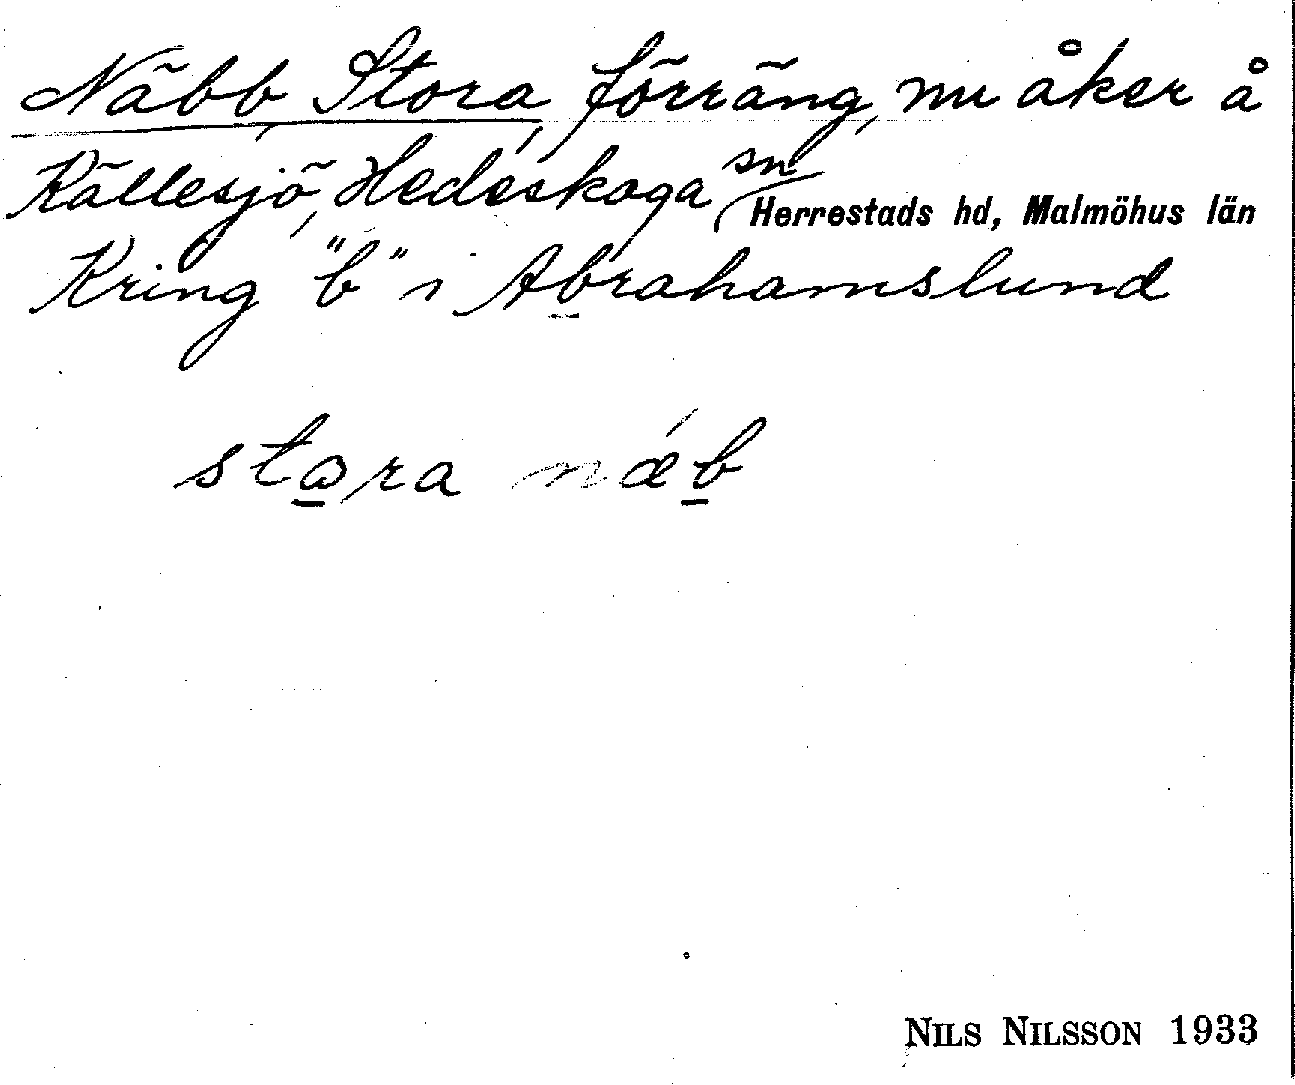 Näbb, Stora, förr äng, nu åker å
Källesjö, Hedeskoga sn
Herrestads hd, Malmöhus län
Kring "b" i Abrahamslund
stora næb
NILS NILSSON 1933